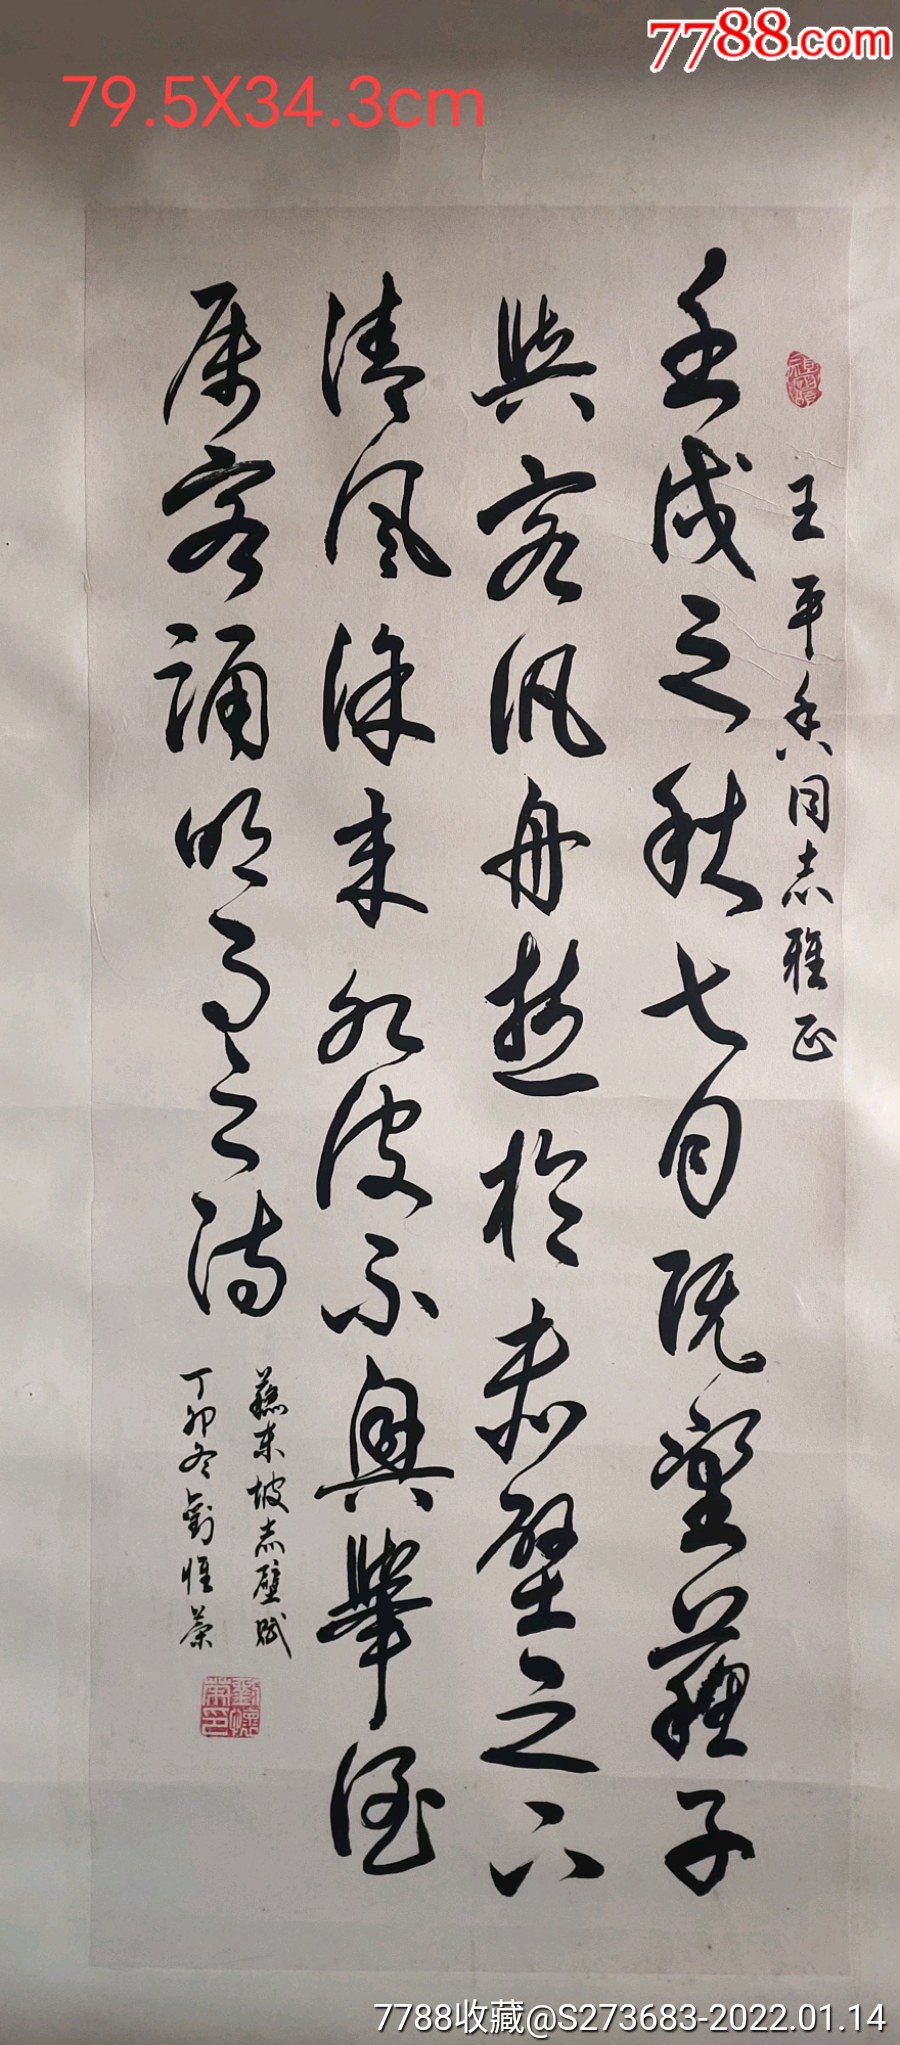 7788.com
79.5X34.3cm
王平同志雅正
壬戌之秋七月既望蘇子
與客汎舟遊於赤壁之下
清風徐来水波不興舉酒
属客誦明月之詩
蘇東坡赤壁賦
丁卯冬劉懷
劉懷印
7788收藏@S273683-2022.01.14